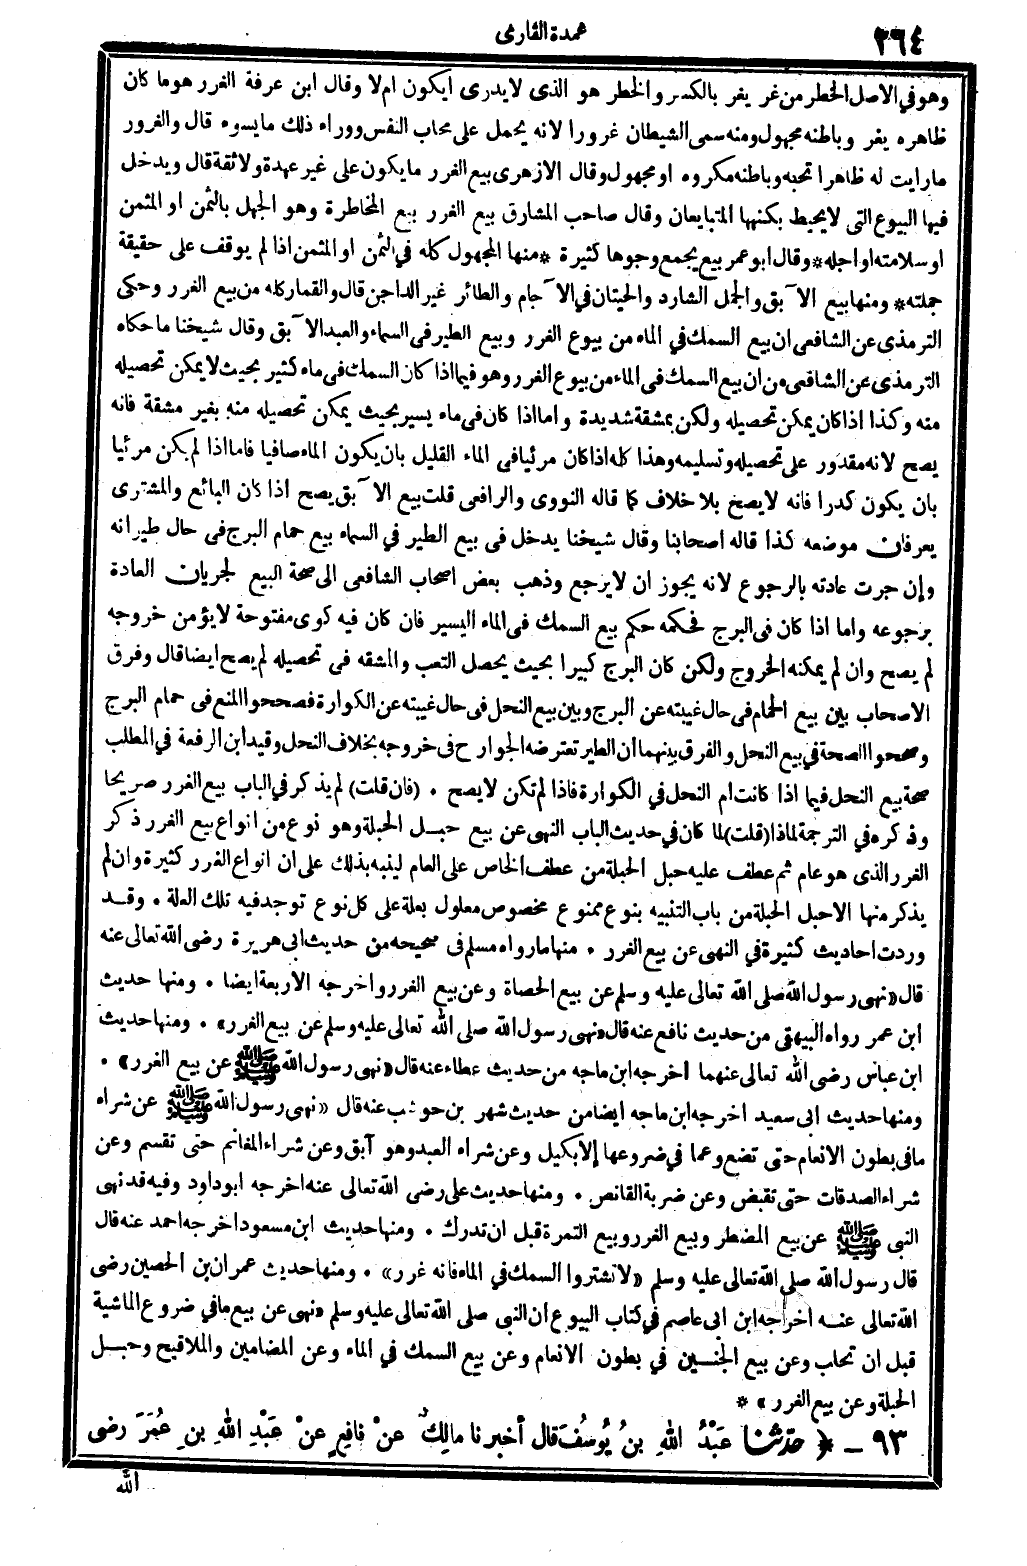 ٢٦٤
عمدة القارى
وهو في الاصل الخطر من غر يغر بالكسر والخطر هو الذى لا يدرى ايكون ام لا وقال ابن عرفة الغرر هو ما كان
ظاهره يغر وباطنه مجهول ومنه سمى الشيطان غرورا لانه يحمل على محاب النفس ووراء ذلك ما يسوء قال والغرور
ما رايت له ظاهرا تحبه وباطنه مكروه او مجهول وقال الازهرى بيع الغرر ما يكون على غير عهدة ولا ثقة قال ويدخل
فيها البيوع التى لا يحيط بكنهها المتبايعان وقال صاحب المشارق بيع الغرر بيع المخاطرة وهو الجهل بالثمن او المثمن
او سلامته او اجله * وقال ابو عمر بيع يجمع وجوها كثيرة * منها المجهول كله في الثمن او المثمن اذا لم يوقف على حقيقة
جملته * ومنها بيع الآبق والجمل الشارد والحيتان في الآجام والطائر غير الداجن قال والقمار كله من بيع الغرر وحكى
الترمذى عن الشافعى ان بيع السمك في الماء من بيوع الغرر وبيع الطير فى السماء والعبد الآبق وقال شيخنا ما حكاه
الترمذى عن الشافعى من ان بيع السمك فى الماء من بيوع الغرر وهو فيما اذا كان السمك فى ماء كثير بحيث لا يمكن تحصيله
منه وكذا اذا كان يمكن تحصيله ولكن بمشقة شديدة واما اذا كان فى ماء يسير بحيث يمكن تحصيله منه بغير مشقة فانه
يصح لانه مقدور على تحصيله وتسليمه وهذا كله اذا كان مرئيا فى الماء القليل بان يكون الماء صافيا فاما اذا لم يكن مرئيا
بان يكون كدرا فانه لا يصح بلا خلاف كما قاله النووى والرافعى قلت بيع الآبق يصح اذا كان البائع والمشترى
يعرفان موضعه كذا قاله اصحابنا وقال شيخنا يدخل فى بيع الطير في السماء بيع حمام البرج فى حال طيرانه
وإن جرت عادته بالرجوع لانه يجوز ان لا يرجع وذهب بعض اصحاب الشافعى الى صحة البيع لجريان العادة
برجوعه واما اذا كان فى البرج فحكمه حكم بيع السمك فى الماء اليسير فان كان فيه كوى مفتوحة لا يؤمن خروجه
لم يصح وان لم يمكنه الخروج ولكن كان البرج كبيرا بحيث يحصل التعب والمشقه فى تحصيله لم يصح ايضا قال وفرق
الاصحاب بين بيع الحمام فى حال غيبته عن البرج وبين بيع النحل فى حال غيبته عن الكوارة فصححوا المنع فى حمام البرج
وصححوا الصحة في بيع النحل والفرق بينهما ان الطير تعترضه الجوارح فى خروجه بخلاف النحل وقيد ابن الرفعة في المطلب
صحة بيع النحل فيما اذا كانت ام النحل في الكوارة فاذا لم تكن لا يصح • (فان قلت) لم يذكر في الباب بيع الغرر صريحا
وذكره في الترجمة لماذا (قلت) لما كان في حديث الباب النهى عن بيع حبل الحبلة وهو نوع من انواع بيع الغرر ذكر
الغرر الذى هو عام ثم عطف عليه حبل الحبلة من عطف الخاص على العام لينبه بذلك على ان انواع الغرر كثيرة وان لم
يذكر منها الا حبل الحبلة من باب التنبيه بنوع ممنوع مخصوص معلول بعلة على كل نوع توجد فيه تلك العلة • وقد
وردت احاديث كثيرة في النهى عن بيع الغرر • منها ما رواه مسلم فى صحيحه من حديث ابى هريرة رضى الله تعالى عنه
قال «نهى رسول الله صلى الله تعالى عليه وسلم عن بيع الحصاة وعن بيع الغرر واخرجه الاربعة ايضا • ومنها حديث
ابن عمر رواه البيهقى من حديث نافع عنه قال «نهى رسول الله صلى الله تعالى عليه وسلم عن بيع الغرر» • ومنها حديث
ابن عباس رضى الله تعالى عنهما اخرجه ابن ماجه من حديث عطاء عنه قال «نهى رسول الله ﷺ عن بيع الغرر» •
ومنها حديث ابى سعيد اخرجه ابن ماجه ايضا من حديث شهر بن حوشب عنه قال «نهى رسول الله ﷺ عن شراء
ما فى بطون الانعام حتى تضع وعما في ضروعها إلا بكيل وعن شراء العبد وهو آبق وعن شراء المغانم حتى تقسم وعن
شراء الصدقات حتى تقبض وعن ضربة القانص • ومنها حديث على رضى الله تعالى عنه اخرجه ابو داود وفيه قد نهى
النبى ﷺ عن بيع المضطر وبيع الغرر وبيع الثمرة قبل ان تدرك • ومنها حديث ابن مسعود اخرجه احمد عنه قال
قال رسول الله صلى الله تعالى عليه وسلم «لا تشتروا السمك في الماء فانه غرر» • ومنها حديث عمران بن الحصين رضى
الله تعالى عنه اخرجه ابن ابى عاصم في كتاب البيوع ان النبى صلى الله تعالى عليه وسلم «نهى عن بيع ما في ضروع الماشية
قبل ان تحلب وعن بيع الجنين في بطون الانعام وعن بيع السمك في الماء وعن المضامين والملاقيح وحبل
الحبلة وعن بيع الغرر» *
٩٣ - ﴿ حدثنا عَبْدُ اللهِ بنُ يُوسُفَ قال أخبرنا مالِكٌ عنْ نافِعٍ عنْ عَبْدِ اللهِ بنِ عُمَرَ رضى
الله